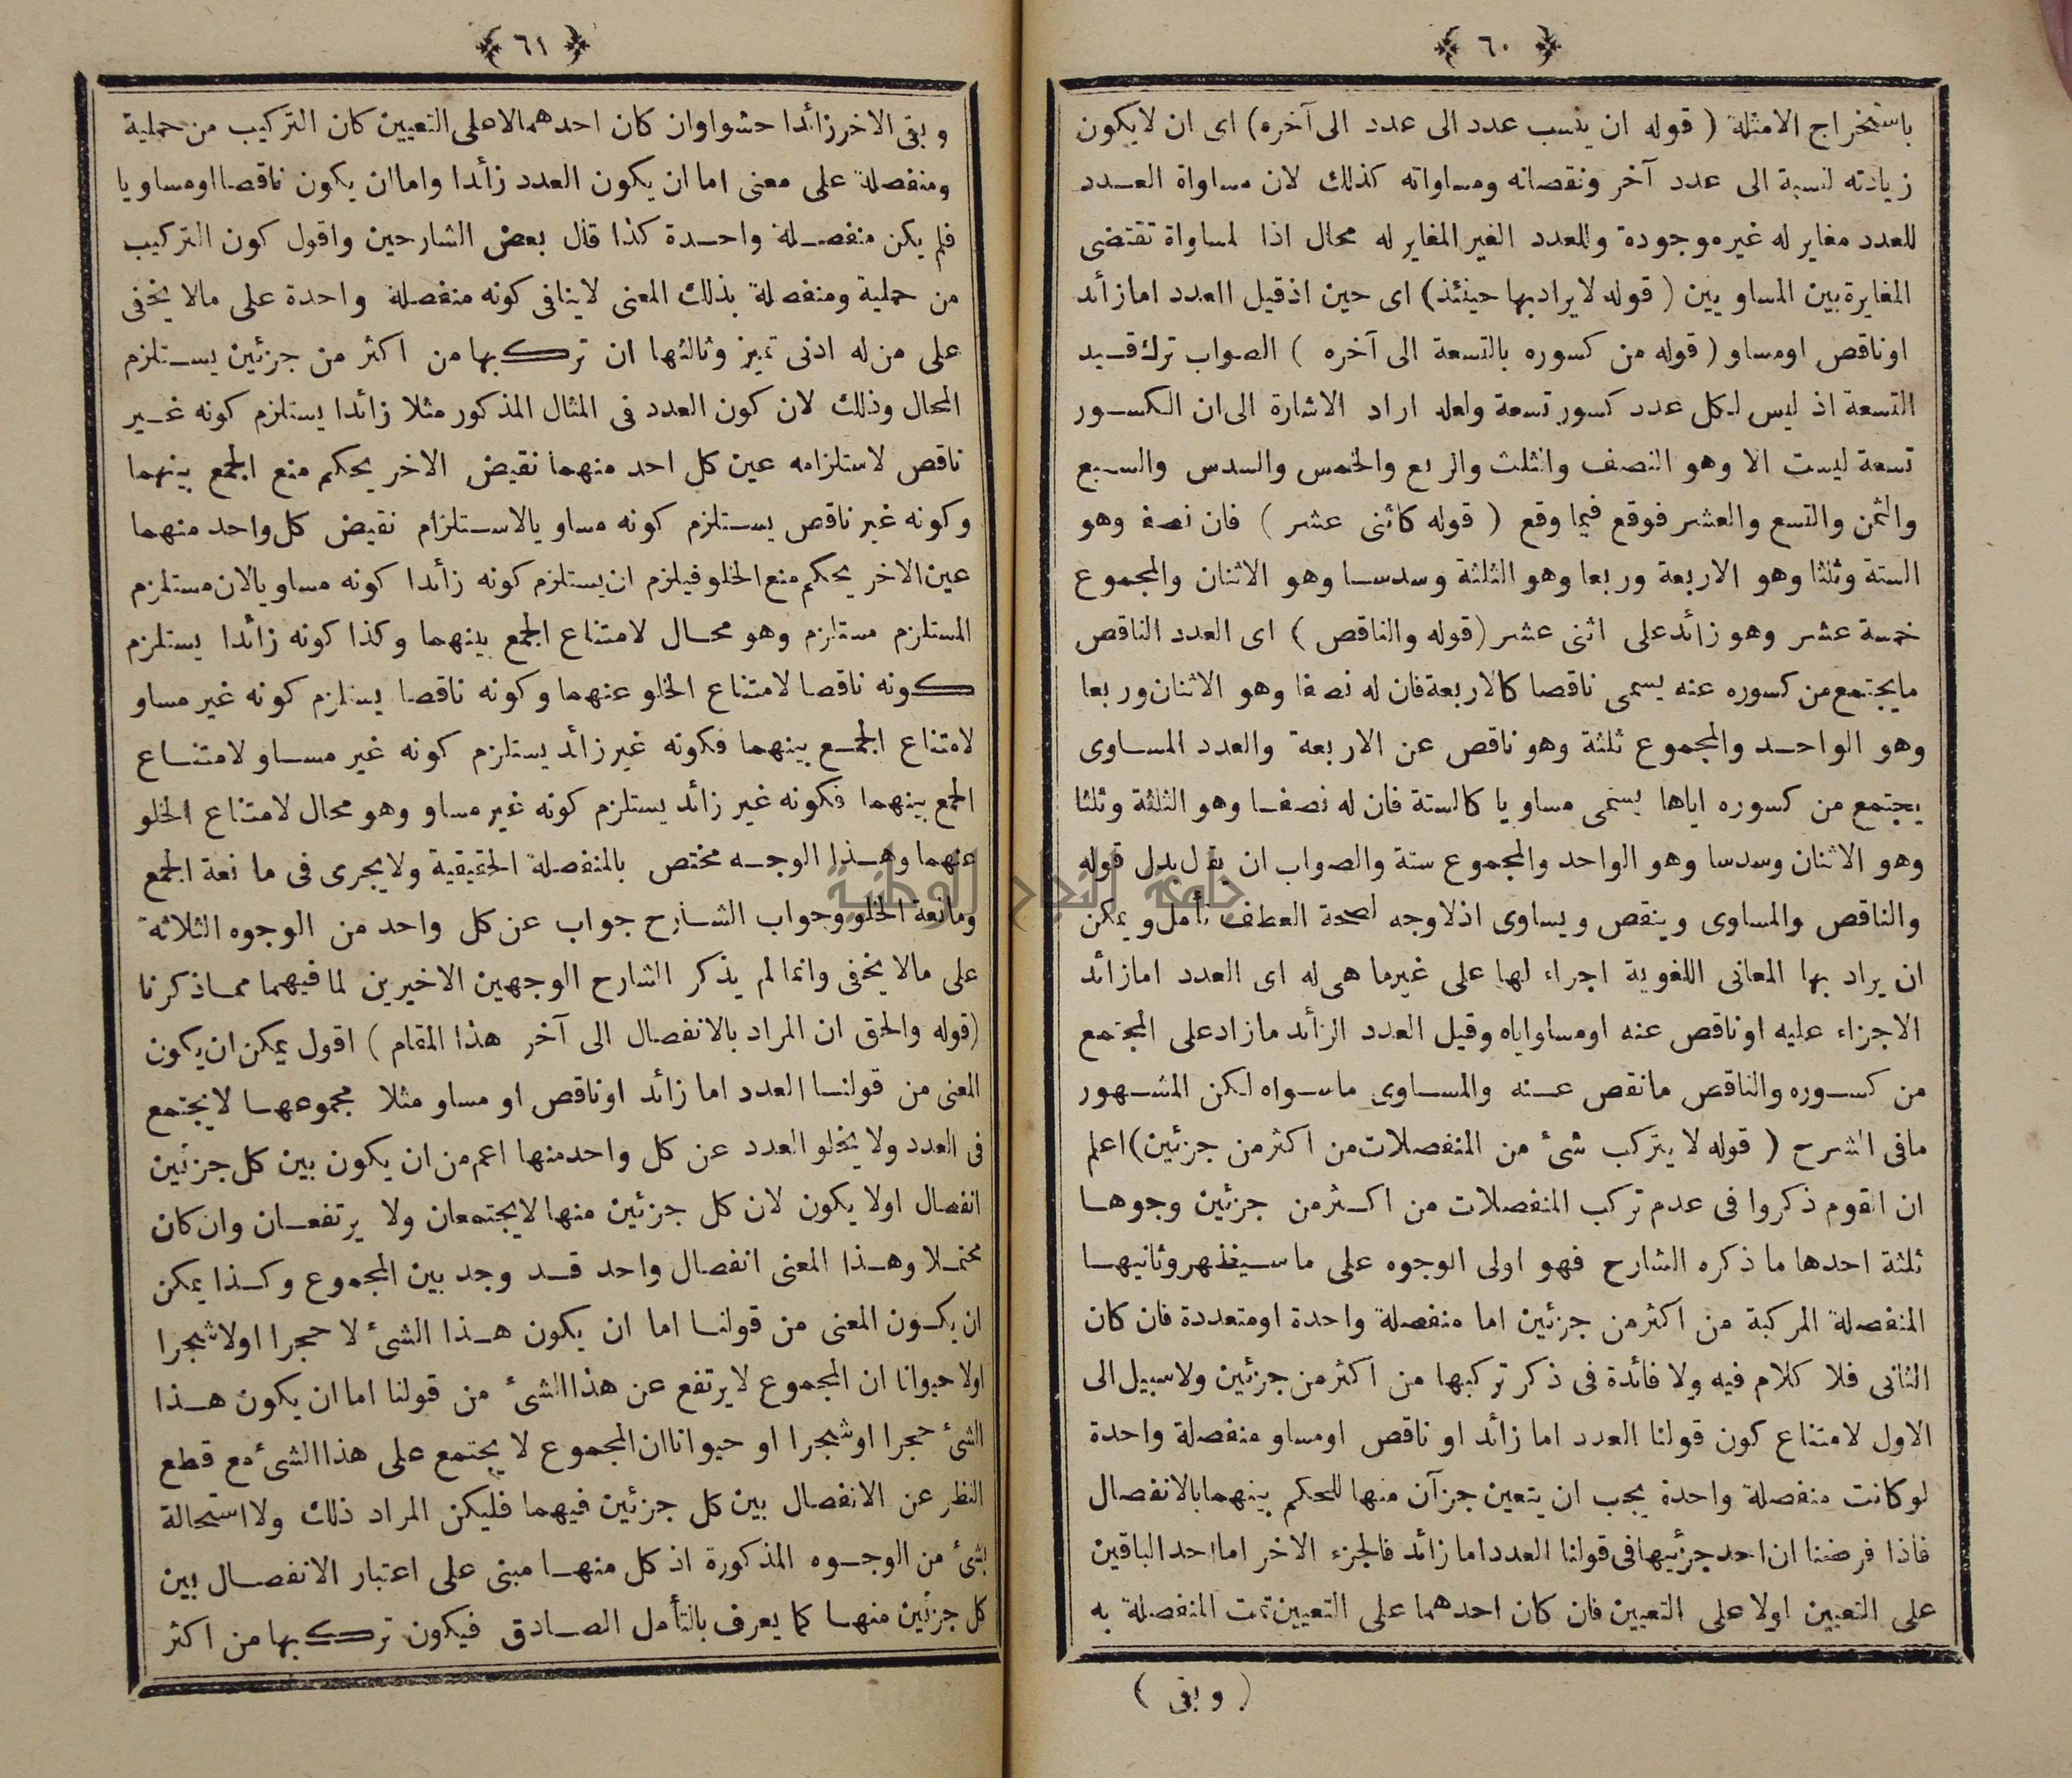 ﴿ ٦٠ ﴾
باستخراج الامثلة ( قوله ان ينسب عدد الى عدد الى آخره ) اى ان لايكون
زيادته لنسبة الى عدد آخر ونقصانه ومساواته كذلك لان مساواة العدد
للعدد مغاير له غير موجودة وللعدد الغير المغاير له محال اذا لمساواة تقتضى
المغايرة بين المساويين ( قوله لايراد بها حينئذ ) اى حين اذ قيل العدد اما زائد
اوناقص اومساو ( قوله من كسوره بالتسعة الى آخره ) الصواب ترك قيد
التسعة اذ ليس لكل عدد كسور تسعة ولعله اراد الاشارة الى ان الكسور
تسعة ليست الا وهو النصف والثلث والربع والخمس والسدس والسبع
والثمن والتسع والعشر فوقع فيما وقع ( قوله كاثنى عشر ) فان نصفه وهو
الستة وثلثا وهو الاربعة وربعا وهو الثلثة وسدسا وهو الاثنان والمجموع
خمسة عشر وهو زائد على اثنى عشر ( قوله والناقص ) اى العدد الناقص
مايجتمع من كسوره عنه يسمى ناقصا كالاربعة فان له نصفا وهو الاثنان وربعا
وهو الواحد والمجموع ثلثة وهو ناقص عن الاربعة والعدد المساوى
يجتمع من كسوره اياها يسمى مساويا كالستة فان له نصفا وهو الثلثة وثلثا
وهو الاثنان وسدسا وهو الواحد والمجموع ستة والصواب ان يقل بدل قوله
والناقص والمساوى وينقص ويساوى اذلاوجه لصحة العطف تأمل ويمكن
ان يراد بها المعانى اللغوية اجراء لها على غيرما هى له اى العدد اما زائد
الاجزاء عليه اوناقص عنه اومساواياه وقيل العدد الزائد مازاد على المجتمع
من كسوره والناقص مانقص عنه والمساوى ماسواه لكن المشهور
مافى الشرح ( قوله لا يتركب شئ من المنفصلات من اكثر من جزئين ) اعلم
ان القوم ذكروا فى عدم تركب المنفصلات من اكثر من جزئين وجوها
ثلثة احدها ما ذكره الشارح فهو اولى الوجوه على ما سيظهر وثانيها
المنفصلة المركبة من اكثر من جزئين اما منفصلة واحدة اومتعددة فان كان
الثانى فلا كلام فيه ولا فائدة فى ذكر تركيبها من اكثر من جزئين ولا سبيل الى
الاول لامتناع كون قولنا العدد اما زائد او ناقص اومساو منفصلة واحدة
لو كانت منفصلة واحدة يجب ان يتعين جزآن منها للحكم بينهما بالانفصال
فاذا فرضنا ان احد جزئيها فى قولنا العدد اما زائد فالجزء الاخر اما احد الباقين
على التعيين اولا على التعيين فان كان احدهما على التعيين تمت المنفصلة به
( وبقى )
﴿ ٦١ ﴾
وبقى الاخر زائدا حشوا وان كان احدهما لا على التعيين كان التركيب من حملية
ومنفصلة على معنى اما ان يكون العدد زائدا واما ان يكون ناقصا اومساويا
فلم يكن منفصلة واحدة كذا قال بعض الشارحين واقول كون التركيب
من حملية ومنفصلة بذلك المعنى لاينافى كونه منفصلة واحدة على مالا يخفى
على من له ادنى تميز وثالثها ان تركبها من اكثر من جزئين يستلزم
المحال وذلك لان كون العدد فى المثال المذكور مثلا زائدا يستلزم كونه غير
ناقص لاستلزامه عين كل احد منهما نقيض الاخر يحكم منع الجمع بينهما
وكونه غير ناقص يستلزم كونه مساويا لاستلزام نقيض كل واحد منهما
عين الاخر يحكم منع الخلو فيلزم ان يستلزم كونه زائدا كونه مساويا لان مستلزم
المستلزم مستلزم وهو محال لامتناع الجمع بينهما وكذا كونه زائدا يستلزم
كونه ناقصا لامتناع الخلو عنهما وكونه ناقصا يستلزم كونه غير مساو
لامتناع الجمع بينهما فكونه غير زائد يستلزم كونه غير مساو لامتناع
الجمع بينهما فكونه غير زائد يستلزم كونه غير مساو وهو محال لامتناع الخلو
عنهما وهذا الوجه مختص بالمنفصلة الحقيقية ولا يجرى فى مانعة الجمع
ومانعة الخلو وجواب الشارح جواب عن كل واحد من الوجوه الثلاثة
على مالا يخفى وانما لم يذكر الشارح الوجهين الاخيرين لما فيهما مما ذكرنا
( قوله والحق ان المراد بالانفصال الى آخر هذا المقام ) اقول يمكن ان يكون
المعنى من قولنا العدد اما زائد اوناقص او مساو مثلا مجموعها لايجتمع
فى العدد ولا يخلو العدد عن كل واحد منها اعم من ان يكون بين كل جزئين
انفصال اولا يكون لان كل جزئين منها لايجتمعان ولا يرتفعان وان كان
محتملا وهذا المعنى انفصال واحد قد وجد بين المجموع وكذا يمكن
ان يكون المعنى من قولنا اما ان يكون هذا الشئ لا حجرا اولا شجرا
اولا حيوانا ان المجموع لايرتفع عن هذا الشئ من قولنا اما ان يكون هذا
الشئ حجرا اوشجرا او حيوانا ان المجموع لا يجتمع على هذا الشئ مع قطع
النظر عن الانفصال بين كل جزئين فيهما فليكن المراد ذلك ولا استحالة
بشئ من الوجوه المذكورة اذ كل منها مبنى على اعتبار الانفصال بين
كل جزئين منها كما يعرف بالتأمل الصادق فيكون تركبها من اكثر
جامعة النجاح الوطنية